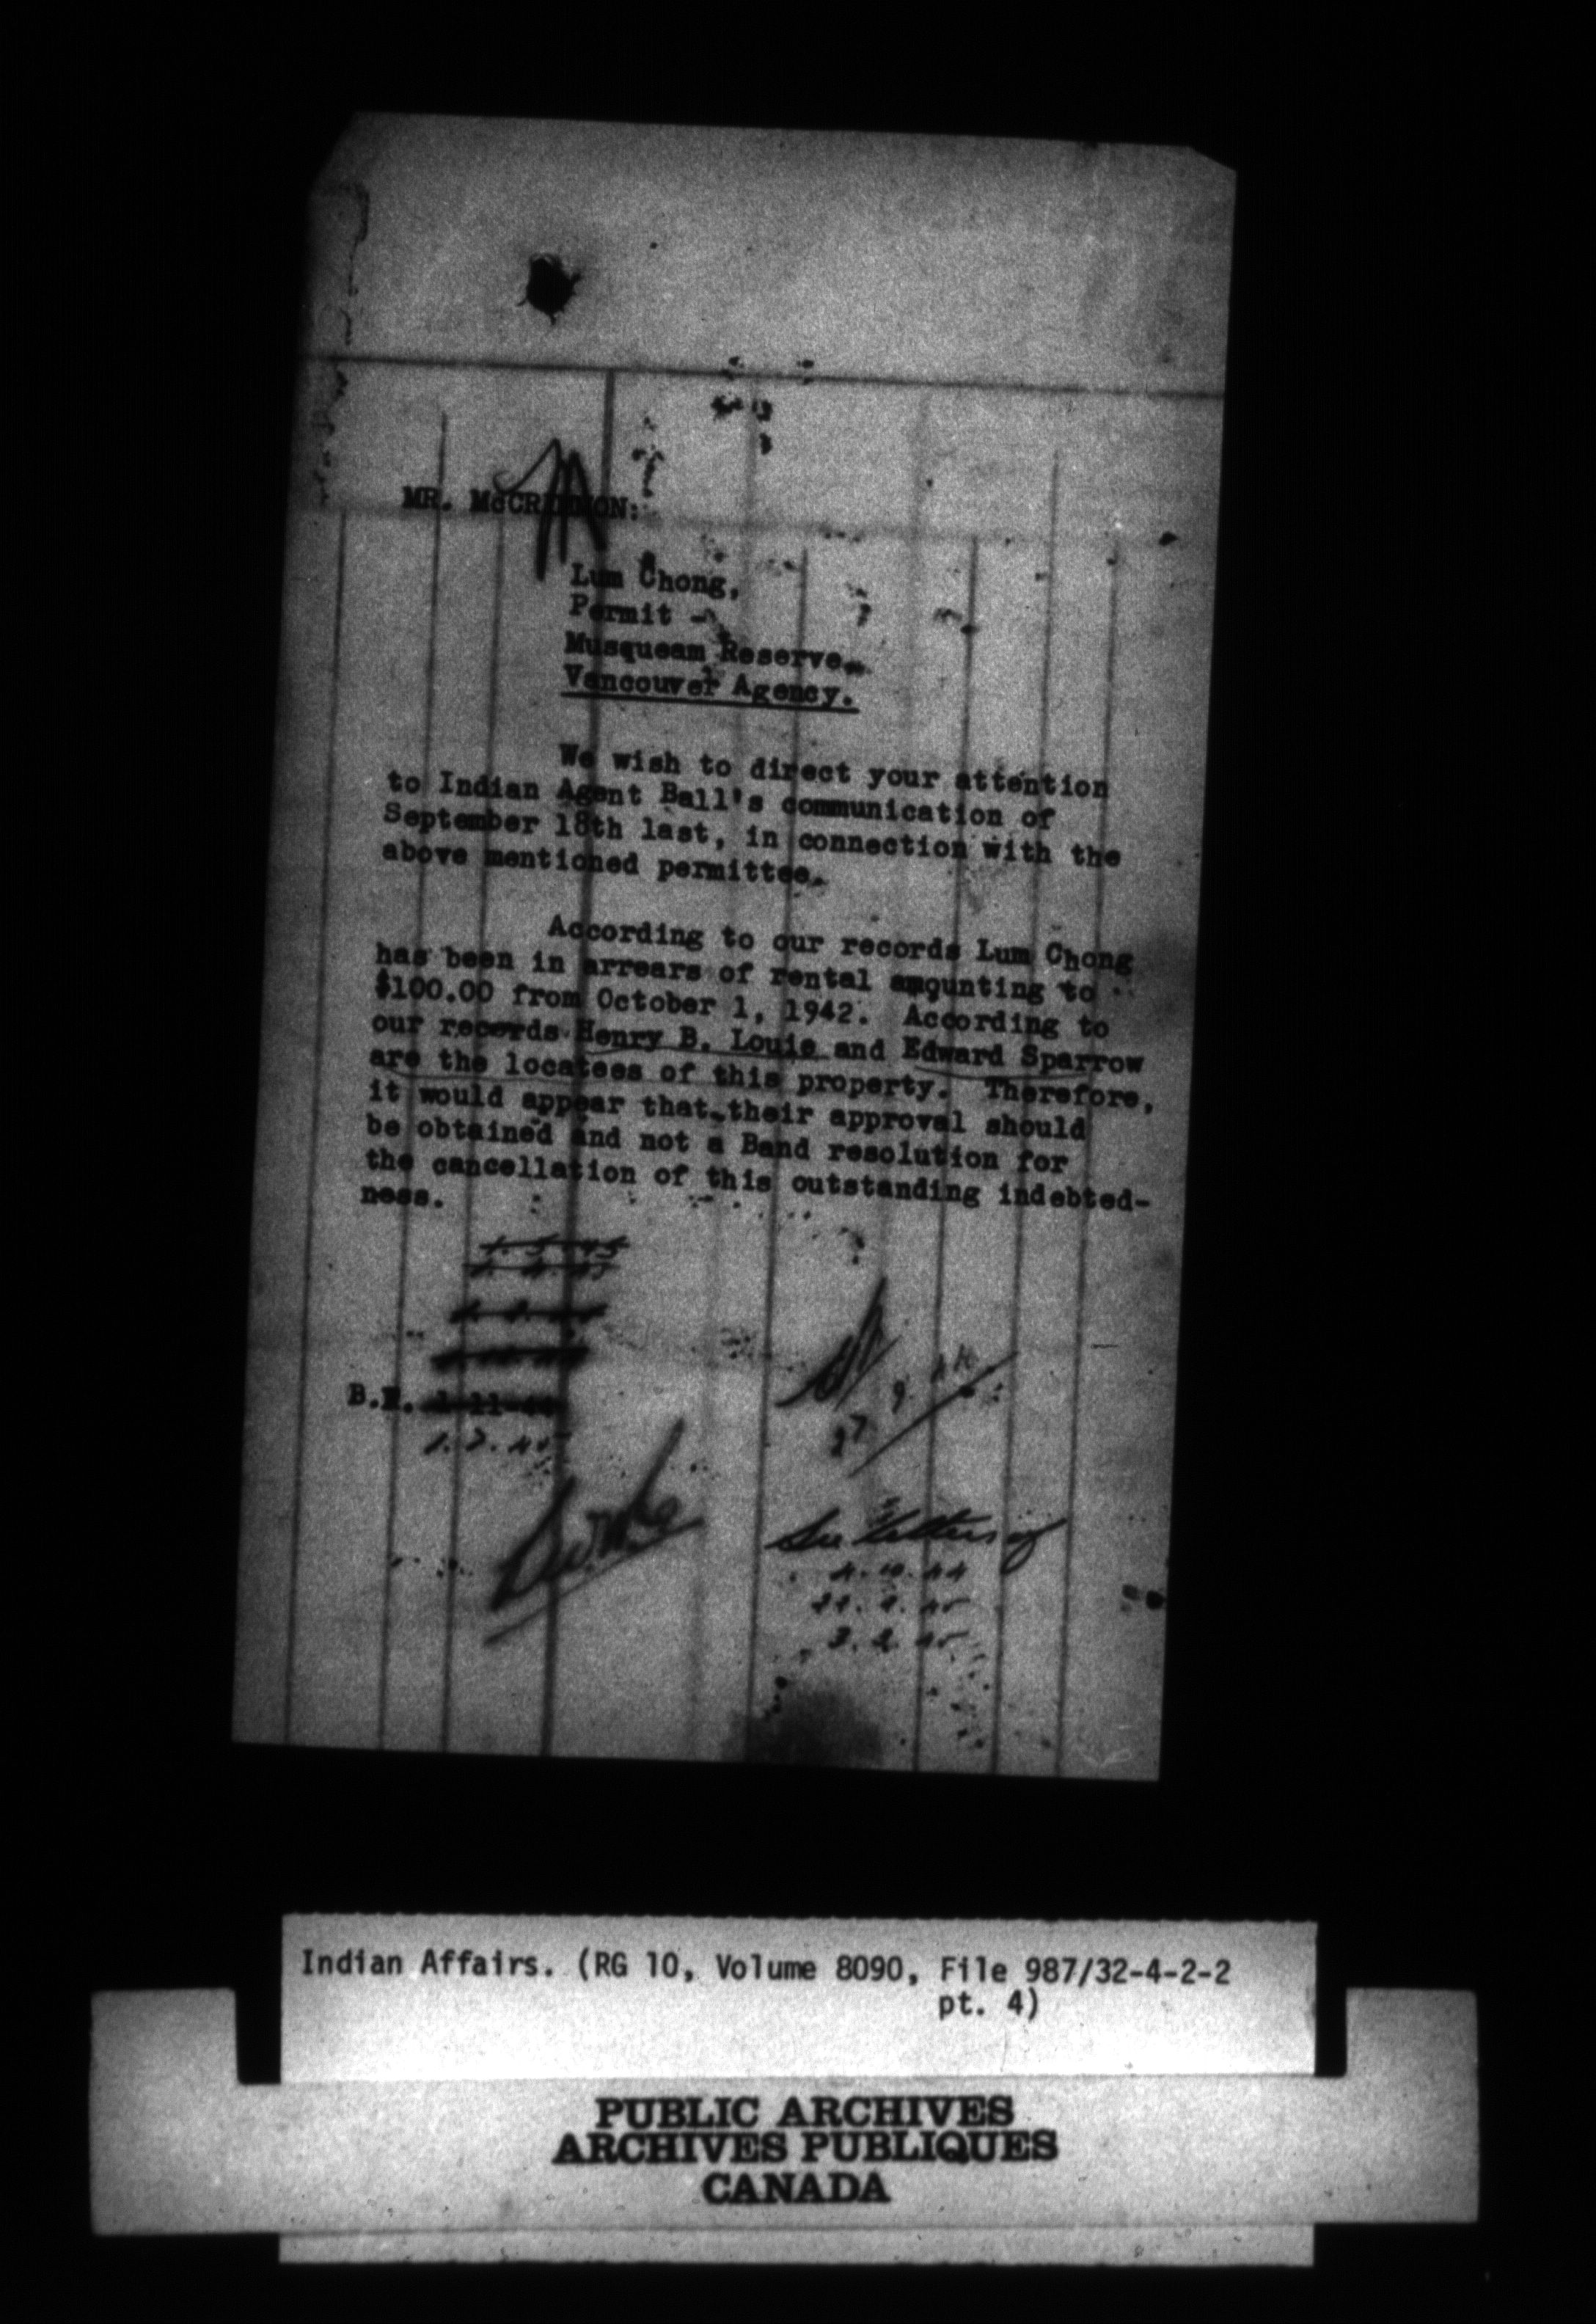 MR. McCRIMMON:
Lum Chong,
Permit -
Musqueam Reserve,
Vancouver Agency.
We wish to direct your attention
to Indian Agent Ball's communication of
September 18th last, in connection with the
above mentioned permittee.
According to our records Lum Chong
has been in arrears of rental amounting to
$100.00 from October 1, 1942. According to
our records Henry B. Louie and Edward Sparrow
are the locatees of this property. Therefore,
it would appear that their approval should
be obtained and not a Band resolution for
the cancellation of this outstanding indebted-
ness.
B.F. 1-11-44
27. 9. 44
See letters of
4.10.44
3.2.45
Indian Affairs. (RG 10, Volume 8090, File 987/32-4-2-2
pt. 4)
PUBLIC ARCHIVES
ARCHIVES PUBLIQUES
CANADA